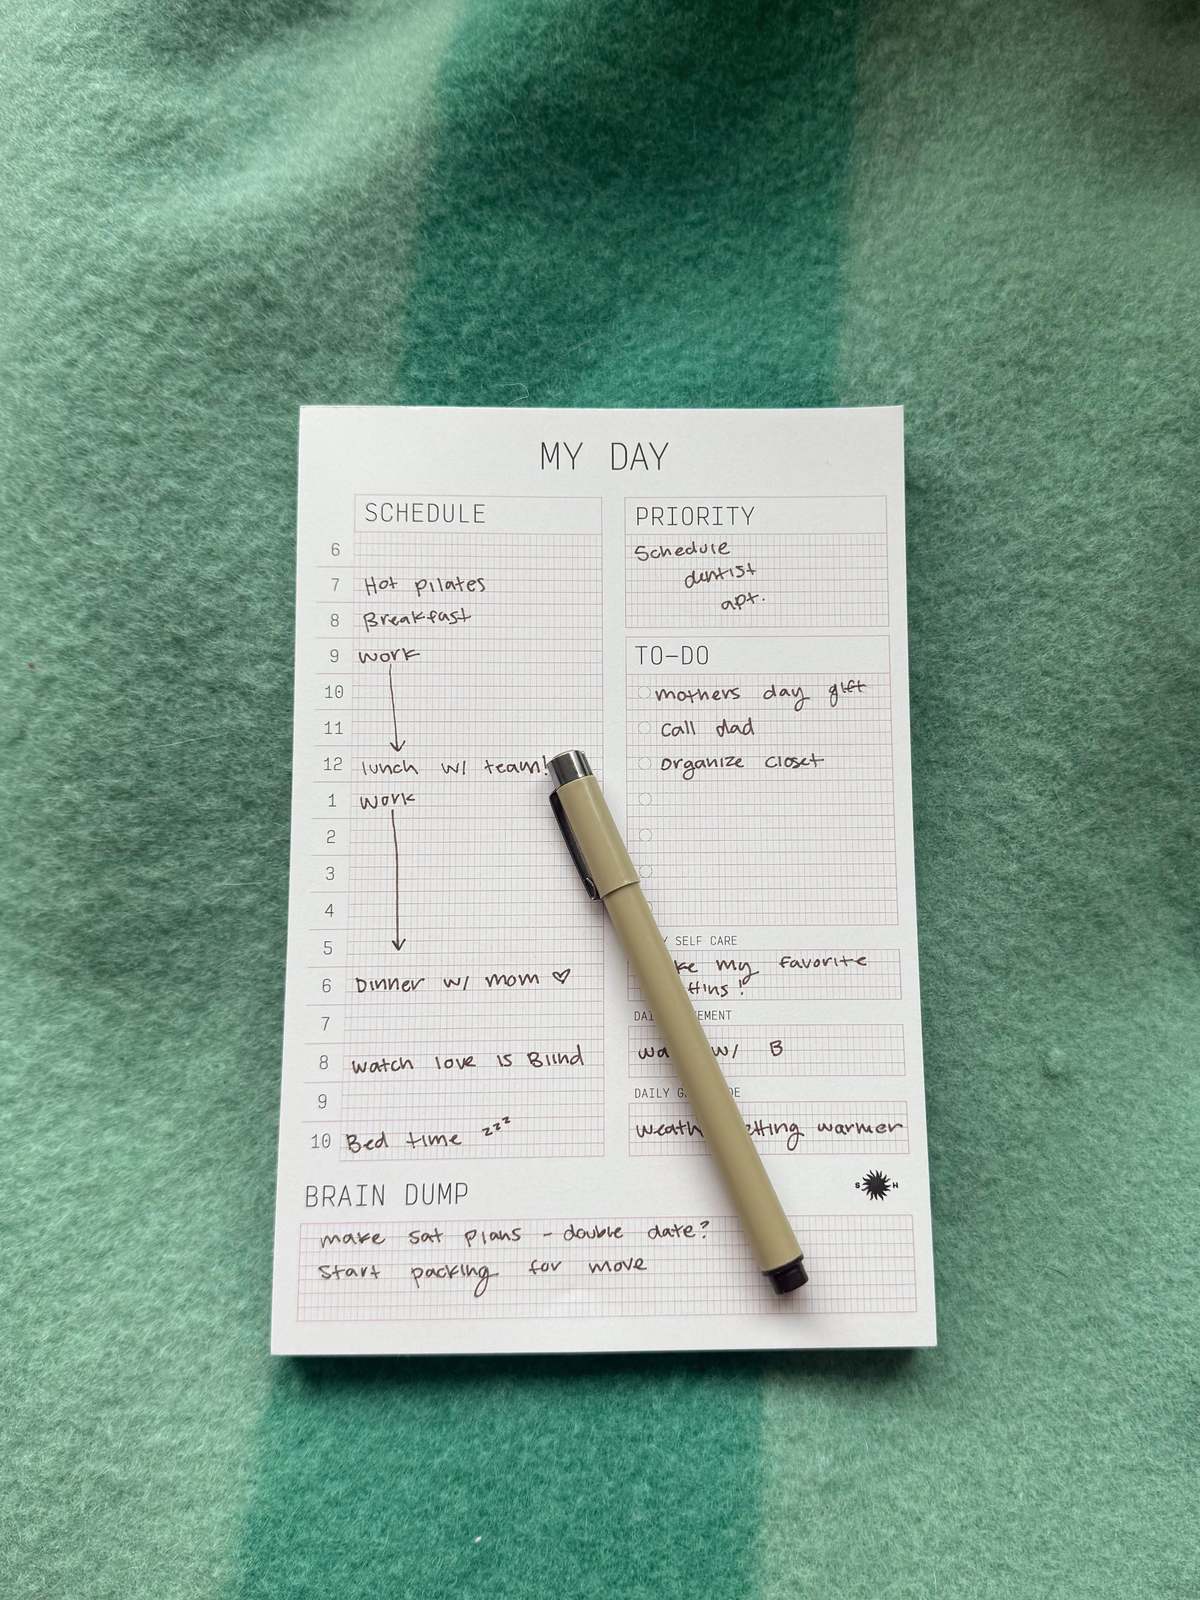 MY DAY
SCHEDULE
6
7 Hot pilates
8 Breakfast
9 work
10
11
12 lunch w/ team!
1 work
2
3
4
5
6 Dinner w/ mom ♡
7
8 watch love is Blind
9
10 Bed time zzz
PRIORITY
Schedule
dentist
apt.
TO-DO
mothers day gift
call dad
organize closet
SELF CARE
my favorite
DAILY
wa w/ B
DAILY
getting warmer
S H
BRAIN DUMP
make sat plans - double date?
Start packing for move